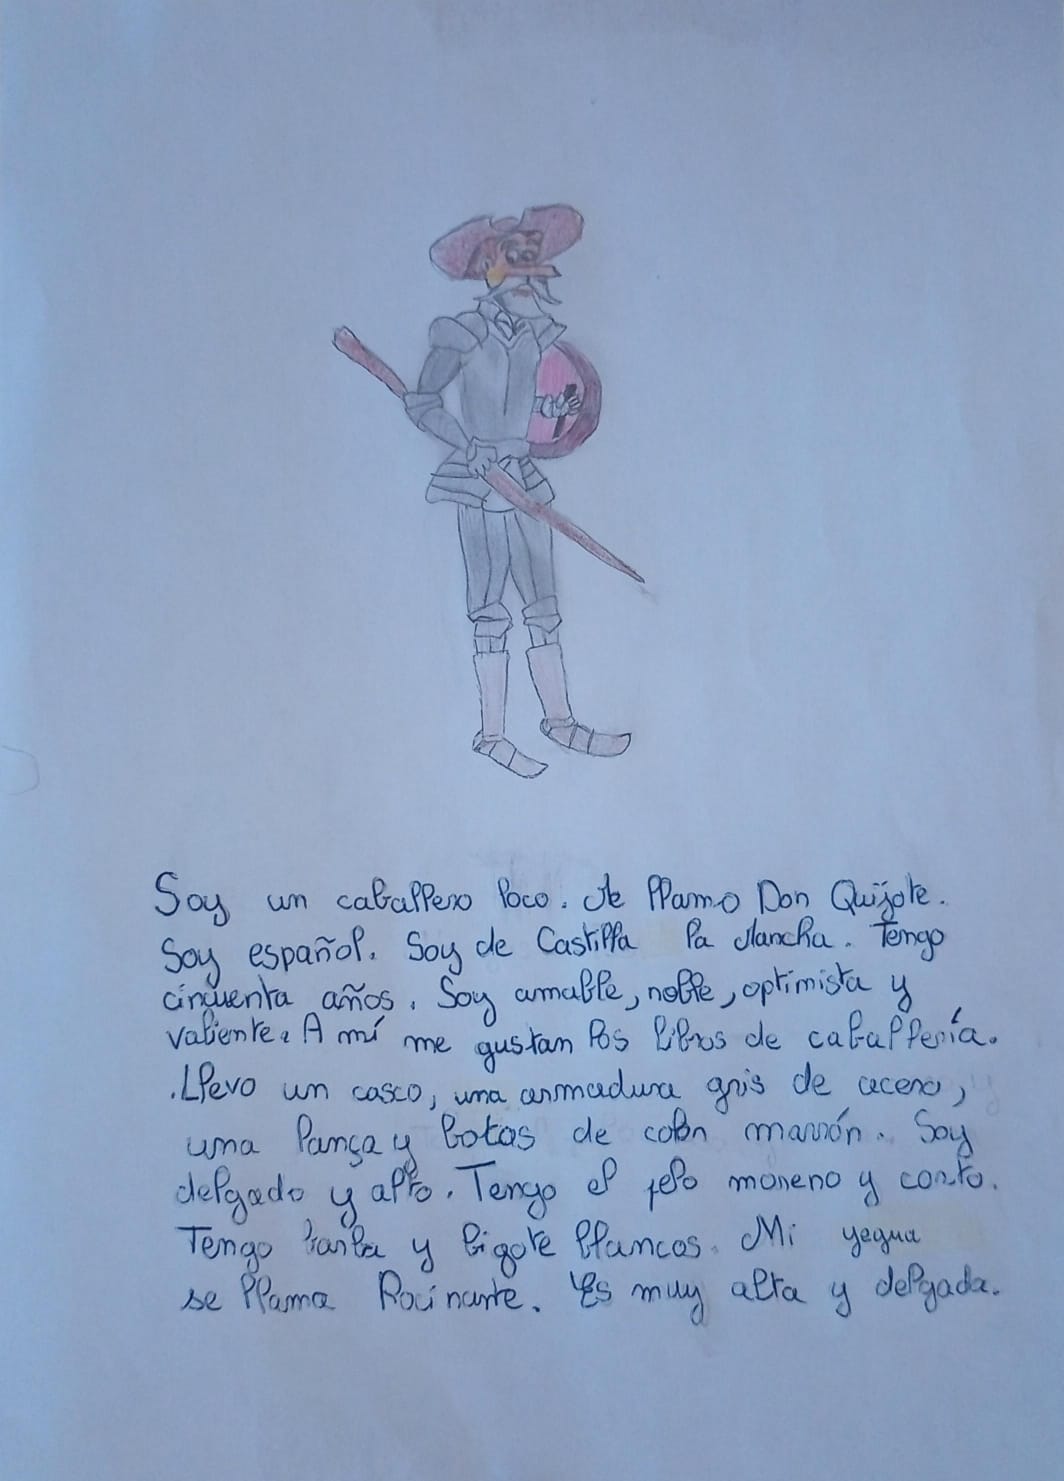 Soy un caballero loco. Me llamo Don Quijote.
Soy español. Soy de Castilla la Mancha. Tengo
cinquenta años. Soy amable, noble, optimista y
valiente. A mí me gustan los libros de caballería.
.Llevo un casco, una armadura gris de acero,
una lança y botas de color marrón. Soy
delgado y alto. Tengo el pelo moreno y corto.
Tengo barba y bigote blancos. Mi yegua
se llama Rocinante. Es muy alta y delgada.